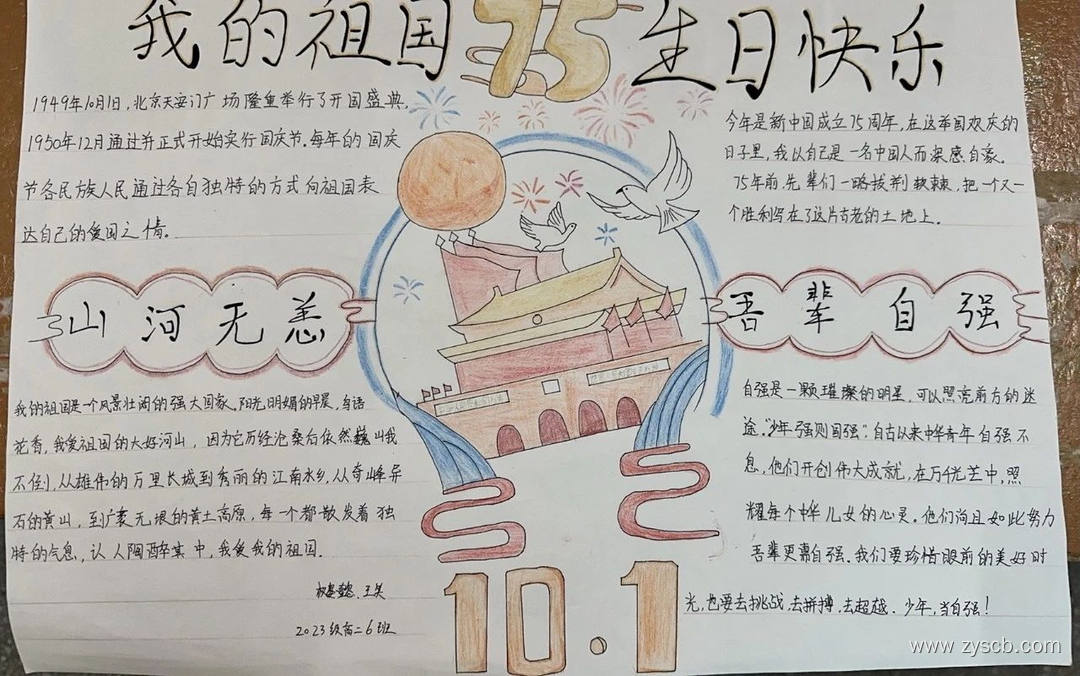 我的祖国75生日快乐
1949年10月1日,北京天安门广场隆重举行了开国盛典,
1950年12月通过并正式开始实行国庆节.每年的国庆
节各民族人民通过各自独特的方式向祖国表
达自己的爱国之情。
今年是新中国成立75周年,在这举国欢庆的
日子里,我以自己是一名中国人而深感自豪.
75年前先辈们一路披荆棘,把一个又一
个胜利写在了这片古老的土地上.
山河无恙
吾辈自强
我的祖国是一个风景壮阔的强大国家,阳光明媚的早晨,鸟语
花香,我爱祖国的大好河山,因为它历经沧桑后依然巍山我
不倒,从雄伟的万里长城到秀丽的江南水乡,从奇峰异
石的黄山,到广袤无垠的黄土高原,每一个都散发着独
特的气息,认人陶醉其中,我爱我的祖国.
2023级高二6班
自强是一颗璀璨的明星,可以照亮前方的迷
途."少年强则国强":自古以来中华青年自强不
息,他们开创伟大成就,在万千光芒中,照
耀每个中华儿女的心灵.他们尚且如此努力
吾辈更需自强.我们要珍惜眼前的美好时
光,也要去挑战,去拼搏,去超越.少年,当自强!
10.1
www.zyscb.com